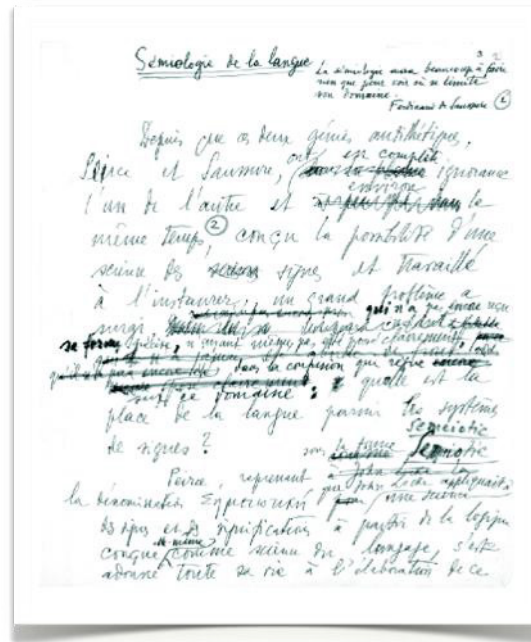 Sémiologie de la langue
La sémiologie aura beaucoup à faire
rien que pour voir où se limite
son domaine.
Ferdinand de Saussure (2)
Depuis que ces deux génies antithétiques,
Peirce et Saussure, ont en complète ignorance
l'un de l'autre et environ le
même temps (2), conçu la possibilité d'une
science des signes et travaillé
à l'instaurer, un grand problème a
surgi, qui n'a pas encore reçu
sa forme précise, n'ayant même pas été posé clairement,
dans la confusion qui règne
sur ce domaine : quelle est la
place de la langue parmi les systèmes
de signes ?
sous la forme semeiotic
Peirce, reprenant
que John Locke appliquait
la dénomination Σημειωτική à une science
des signes et des significations à partir de la logique
conçue elle-même comme science du langage, s'est
adonné toute sa vie à l'élaboration de ce